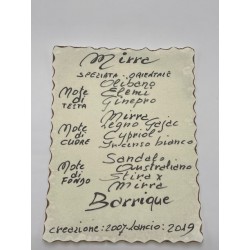 Mirra
SPEZIATA - ORIENTALE
Olibano
Note di TESTA
Elemi
Ginepro
Mirra
Note di CUORE
Legno Gaiac
Cypriol
Incenso bianco
Sandalo
Note di FONDO
Australiano
Stirax
Mirra
Barrique
creazione: 2007. Lancio: 2019